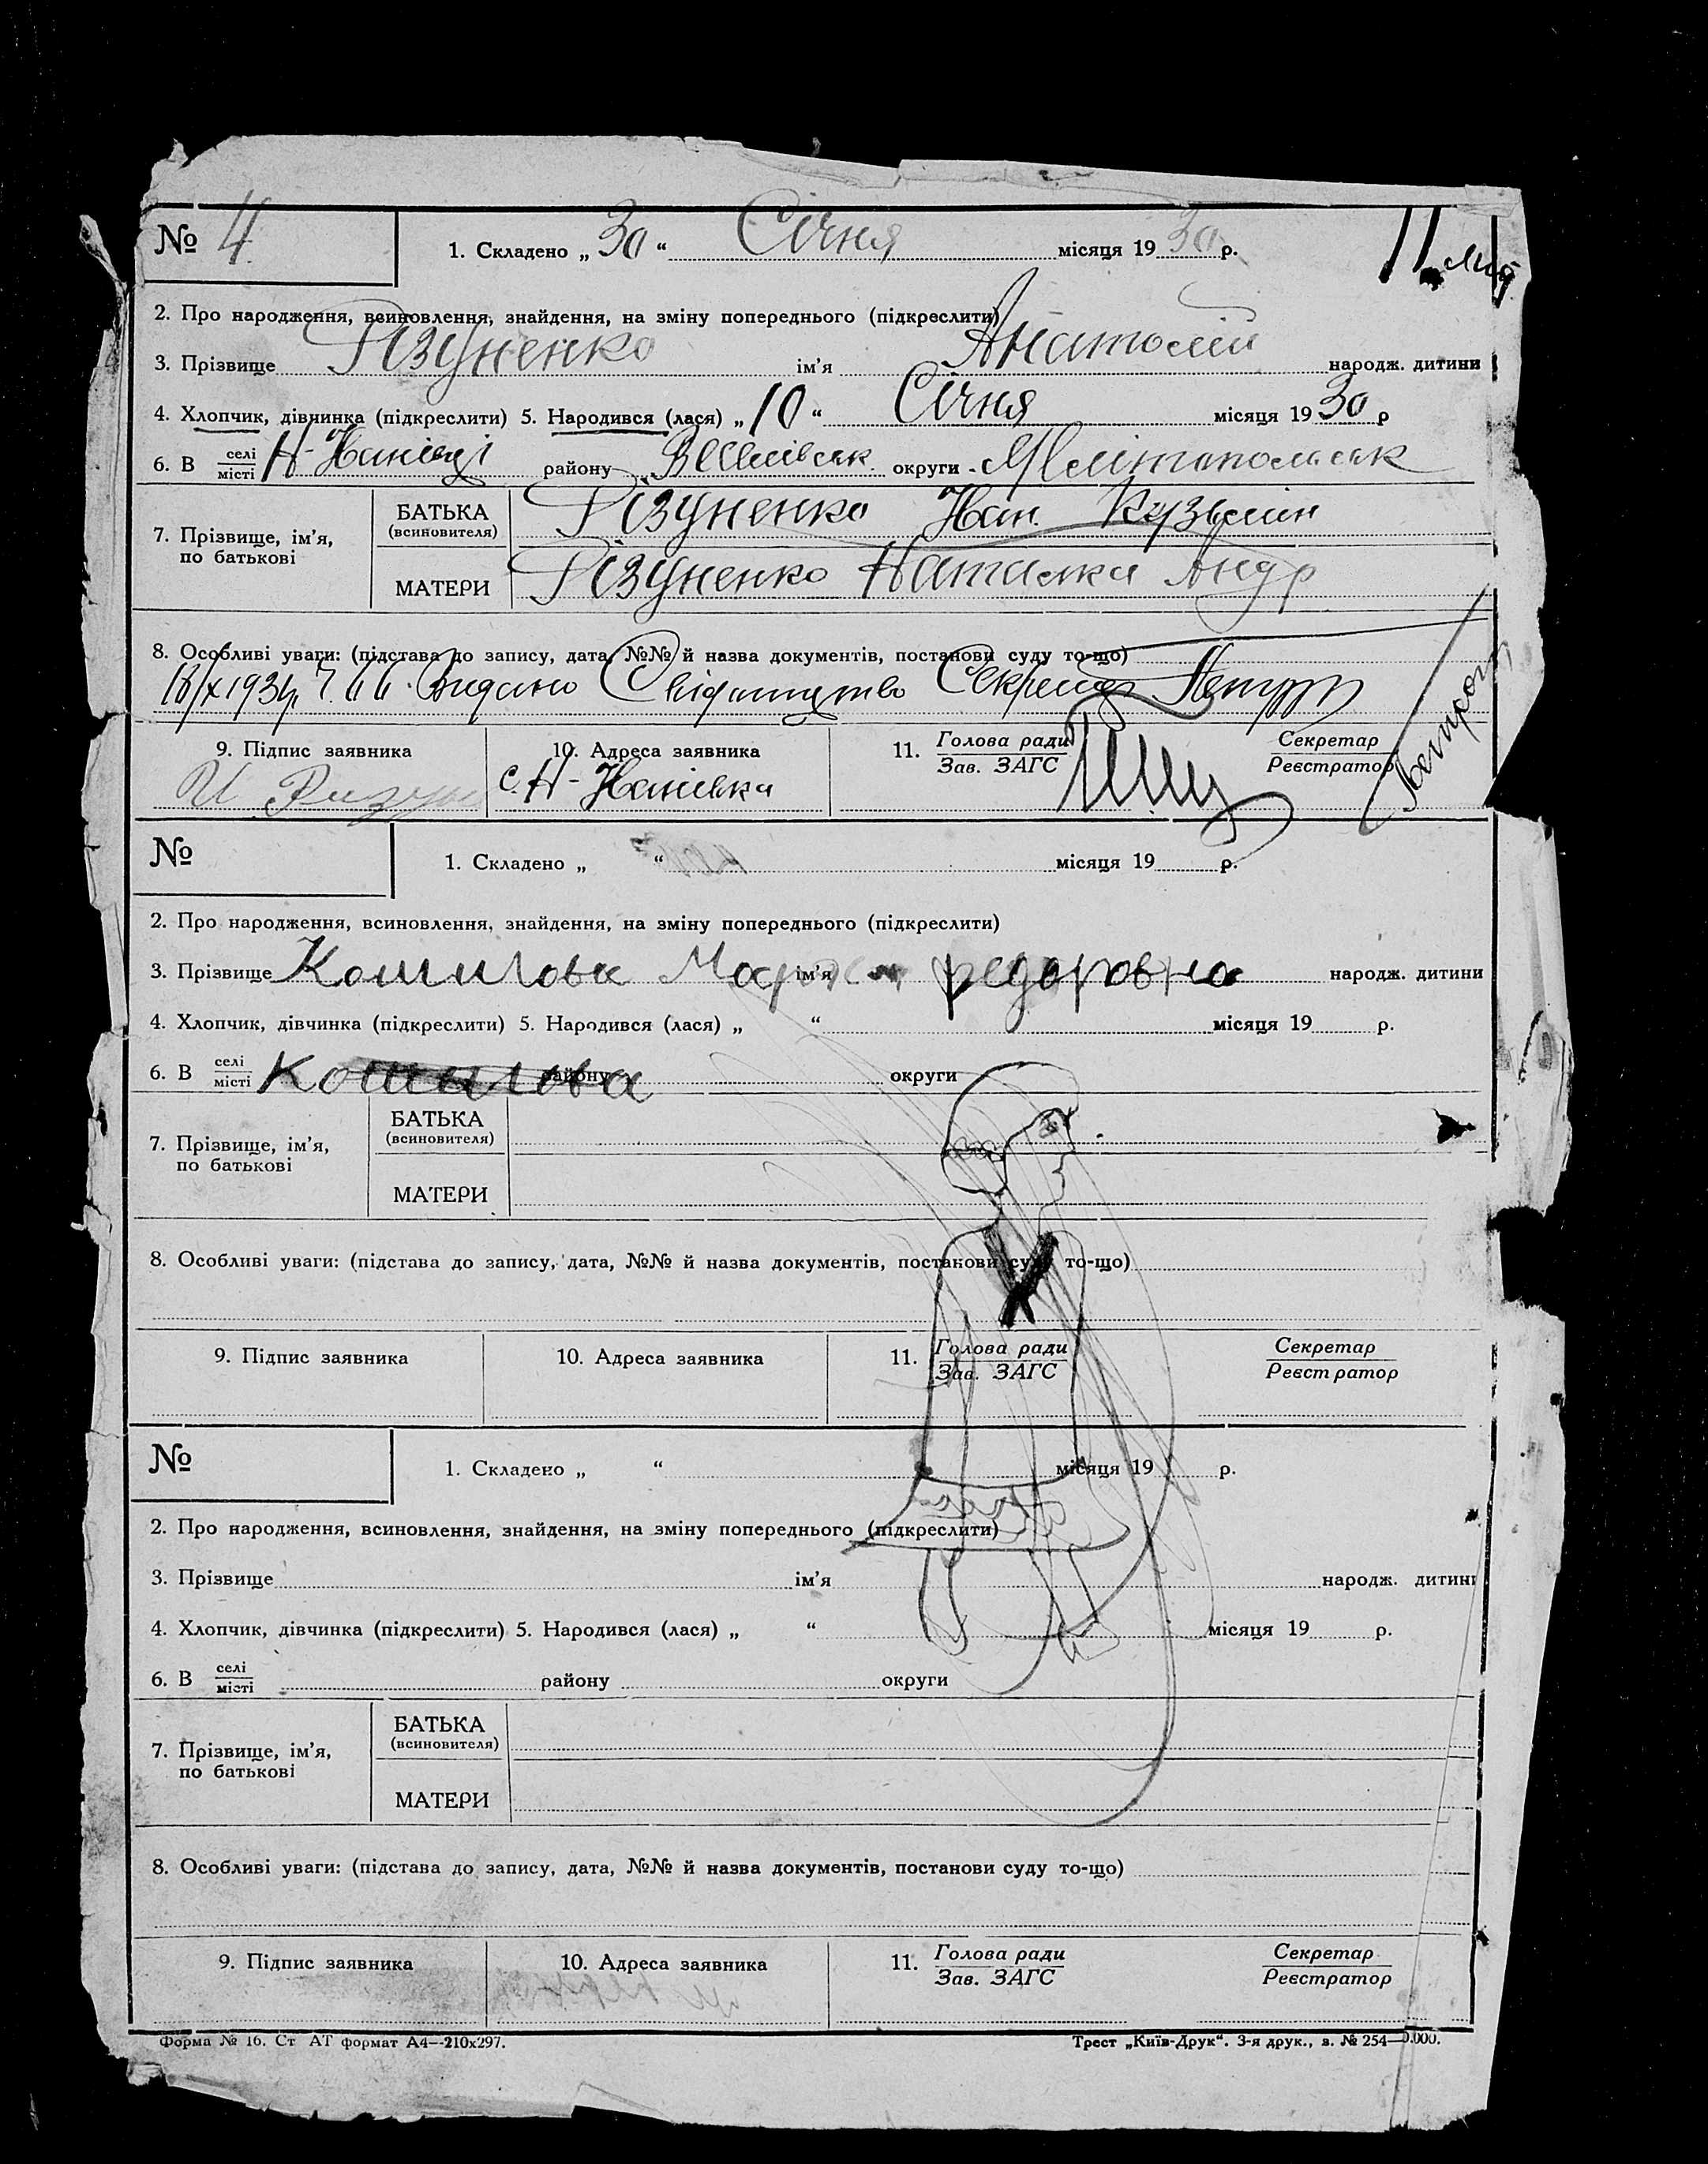 № 4
1. Складено „ 30 “ Січня місяця 19 30 р.
11
2. Про народження, всиновлення, знайдення, на зміну попереднього (підкреслити)
3. Прізвище Різуненко ім’я Анатолій народж. дитини
4. Хлопчик, дівчинка (підкреслити) 5. Народився (лася) „ 10 “ Січня місяця 19 30 р
6. В селі місті району округи Мелітопольськ
7. Прізвище, ім’я, по батькові
БАТЬКА (всиновителя) Різуненко Кузьмін
МАТЕРИ Різуненко Наталка Андр
8. Особливі уваги: (підстава до запису, дата, №№ й назва документів, постанови суду то-що)
Видано Свідоцтво Секретар
9. Підпис заявника 10. Адреса заявника 11. Голова ради Зав. ЗАГС Секретар Реєстратор
№
1. Складено „ “ місяця 19 р.
2. Про народження, всиновлення, знайдення, на зміну попереднього (підкреслити)
3. Прізвище Кошилова Мария федоровна ім’я народж. дитини
4. Хлопчик, дівчинка (підкреслити) 5. Народився (лася) „ “ місяця 19 р.
6. В селі місті Кошилова району округи
7. Прізвище, ім’я, по батькові
БАТЬКА (всиновителя)
МАТЕРИ
8. Особливі уваги: (підстава до запису, дата, №№ й назва документів, постанови суду то-що)
9. Підпис заявника 10. Адреса заявника 11. Голова ради Зав. ЗАГС Секретар Реєстратор
№
1. Складено „ “ місяця 19 р.
2. Про народження, всиновлення, знайдення, на зміну попереднього (підкреслити)
3. Прізвище ім’я народж. дитини
4. Хлопчик, дівчинка (підкреслити) 5. Народився (лася) „ “ місяця 19 р.
6. В селі місті району округи
7. Прізвище, ім’я, по батькові
БАТЬКА (всиновителя)
МАТЕРИ
8. Особливі уваги: (підстава до запису, дата, №№ й назва документів, постанови суду то-що)
9. Підпис заявника 10. Адреса заявника 11. Голова ради Зав. ЗАГС Секретар Реєстратор
Форма № 16. Ст АТ формат А4—210х297. Трест „Київ-Друк“. 3-я друк., з. № 254—